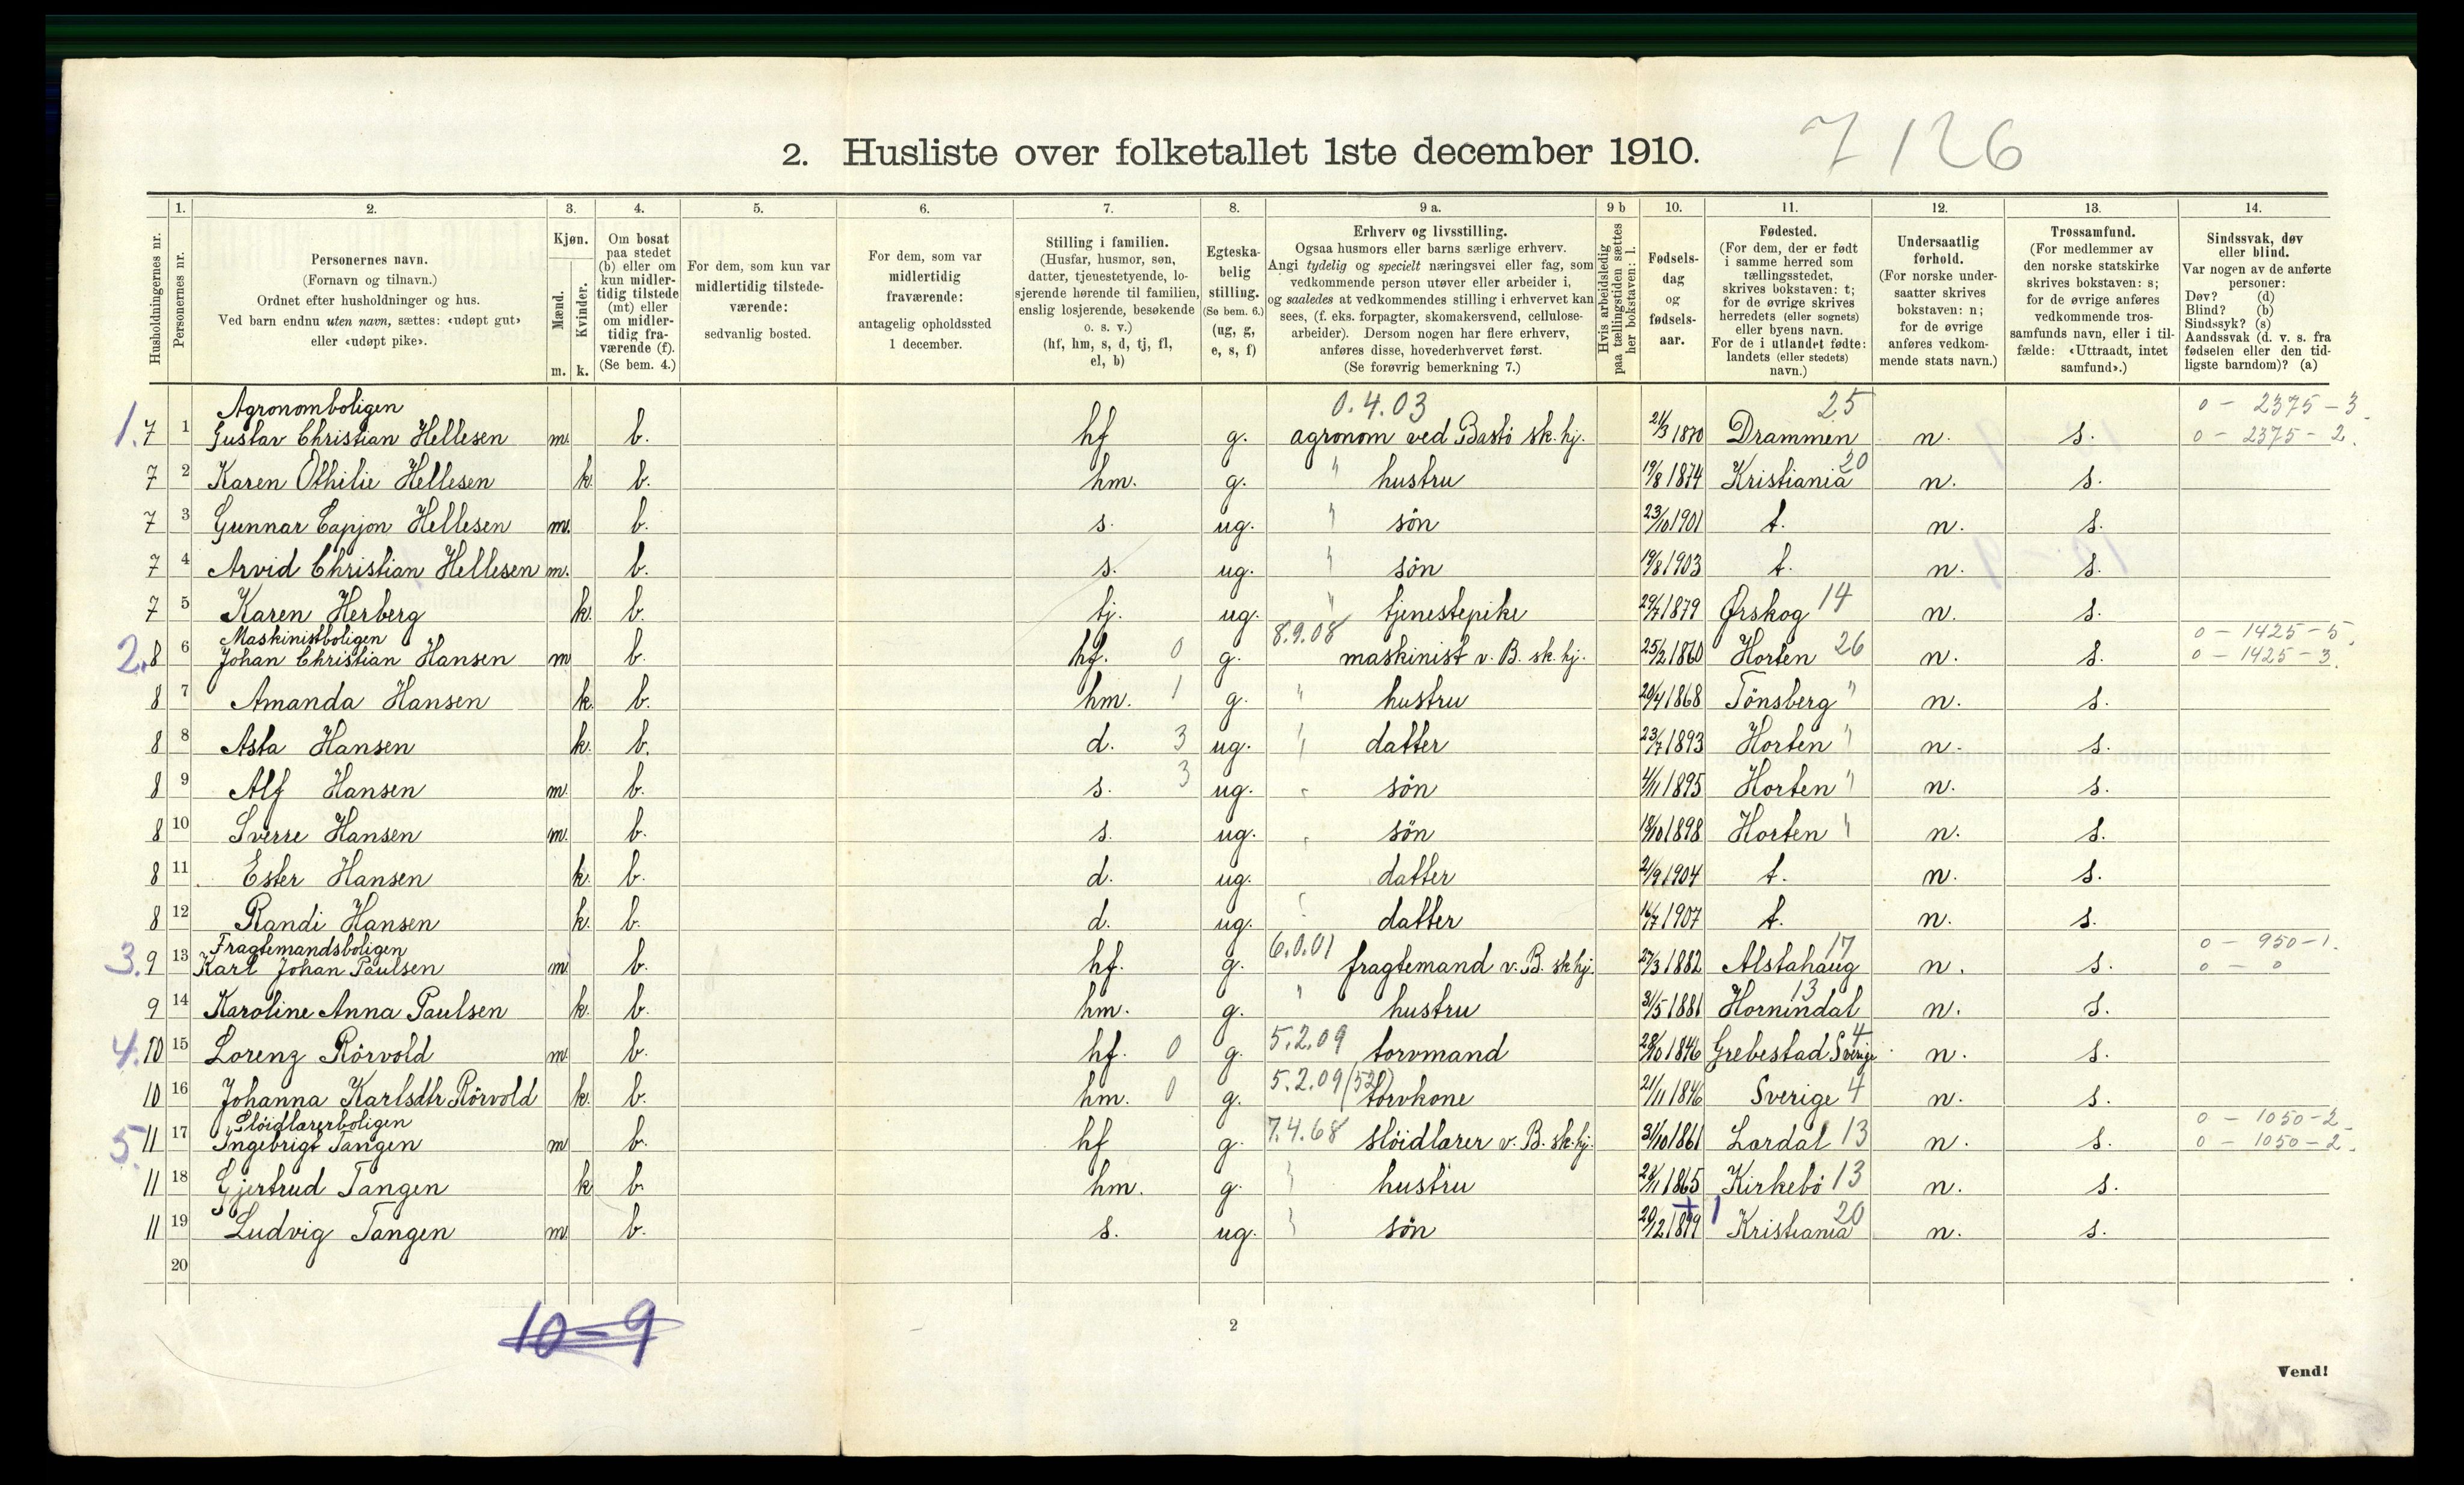 2. Husliste over folketallet 1ste december 1910. 7/26
1. 2. 3. 4. 5. 6. 7. 8. 9 a. 9 b 10. 11. 12. 13. 14.
Husholdningernes nr.
Personernes nr.
Personernes navn.
(Fornavn og tilnavn.)
Ordnet efter husholdninger og hus.
Ved barn endnu uten navn, sættes: «udøpt gut»
eller «udøpt pike».
Kjøn.
Mænd.
Kvinder.
m. k.
Om bosat
paa stedet
(b) eller om
kun midler-
tidig tilstede
(mt) eller
om midler-
tidig fra-
værende (f).
(Se bem. 4.)
For dem, som kun var
midlertidig tilstede-
værende:
sedvanlig bosted.
For dem, som var
midlertidig
fraværende:
antagelig opholdssted
1 december.
Stilling i familien.
(Husfar, husmor, søn,
datter, tjenestetyende, lo-
sjerende hørende til familien,
enslig losjerende, besøkende
o. s. v.)
(hf, hm, s, d, tj, fl,
el, b)
Egteska-
belig
stilling.
(Se bem. 6.)
(ug, g,
e, s, f)
Erhverv og livsstilling.
Ogsaa husmors eller barns særlige erhverv.
Angi tydelig og specielt næringsvei eller fag, som
vedkommende person utøver eller arbeider i,
og saaledes at vedkommendes stilling i erhvervet kan
sees, (f. eks. forpagter, skomakersvend, cellulose-
arbeider). Dersom nogen har flere erhverv,
anføres disse, hovederhvervet først.
(Se forøvrig bemerkning 7.)
Hvis arbeidsledig
paa tællingstiden sættes
her bokstaven: l.
Fødsels-
dag
og
fødsels-
aar.
Fødested.
(For dem, der er født
i samme herred som
tællingsstedet,
skrives bokstaven: t;
for de øvrige skrives
herredets (eller sognets)
eller byens navn.
For de i utlandet fødte:
landets (eller stedets)
navn.)
Undersaatlig
forhold.
(For norske under-
saatter skrives
bokstaven: n;
for de øvrige
anføres vedkom-
mende stats navn.)
Trossamfund.
(For medlemmer av
den norske statskirke
skrives bokstaven: s;
for de øvrige anføres
vedkommende tros-
samfunds navn, eller i til-
fælde: «Uttraadt, intet
samfund».)
Sindssvak, døv
eller blind.
Var nogen av de anførte
personer:
Døv? (d)
Blind? (b)
Sindssyk? (s)
Aandssvak (d. v. s. fra
fødselen eller den tid-
ligste barndom)? (a)
Agronomboligen 0.4.03 25 0 - 2375 - 3
1. 7 1 Gustav Christian Hellesen m. b. hf g. agronom ved Bastö sk. hj. 21/3 1870 Drammen n. s. 0 - 2375 - 2.
7 2 Karen Othilie Hellesen k. b. hm. g. " hustru 19/8 1874 Kristiania 20 n. s.
7 3 Gunnar Capjon Hellesen m. b. s. ug. " sön 23/10 1901 t. n. s.
7 4 Arvid Christian Hellesen m. b. s. ug. " sön 19/8 1903 t. n. s.
7 5 Karen Herberg k. b. tj. ug. " tjenestepike 29/7 1879 Ørskog 14 n. s.
Maskinistboligen 8.9.08 0 - 1425 - 5.
2. 8 6 Johan Christian Hansen m b. hf. 0 g. maskinist v. B. sk. hj. 25/2 1860 Horten 26 n. s. 0 - 1425 - 3.
8 7 Amanda Hansen k. b. hm. 1 g. " hustru 20/4 1868 Tönsberg " n. s.
8 8 Asta Hansen k. b. d. 3 ug. " datter 23/7 1893 Horten " n. s.
8 9 Alf Hansen m. b. s. 3 ug. " sön 4/11 1895 Horten " n. s.
8 10 Sverre Hansen m. b. s. ug. " sön 18/10 1898 Horten " n. s.
8 11 Ester Hansen k. b. d. ug. datter 21/9 1904 t. n. s.
8 12 Randi Hansen k. b. d. ug. " datter 16/7 1907 t. n. s.
Fragtemandsboligen 6.0.01 17 0 - 950 - 1.
3. 9 13 Karl Johan Paulsen m. b. hf. g. fragtemand v. B. sk hj. 27/3 1882 Alstahaug n. s. 0 - 0
9 14 Karoline Anna Paulsen k. b. hm. g. " hustru 31/5 1881 Hornindal 13 n. s.
4. 10 15 Lorenz Rörvold m. b. hf. 0 g. 5.2.09 torvmand 28/10 1846 Grebestad Sverige 4 n. s.
10 16 Johanna Karlsdtr Rörvold k. b. hm. 0 g. 5.2.09 (52) torvkone 21/11 1846 Sverige 4 n. s.
Slöidlærerboligen 0 - 1050 - 2
5. 11 17 Ingebrigt Tangen m b. hf g. 7.4.68 slöidlærer v. B. sk. hj. 31/10 1861 Lardal 13 n. s. 0 - 1050 - 2.
11 18 Gjertrud Tangen k b. hm. g. " hustru 1865 Kirkebö 13 n. s.
11 19 Ludvig Tangen m. b. s. ug. " sön 20/12 1899 1 Kristiania 20 n. s.
20
10 - 9
2
Vend!